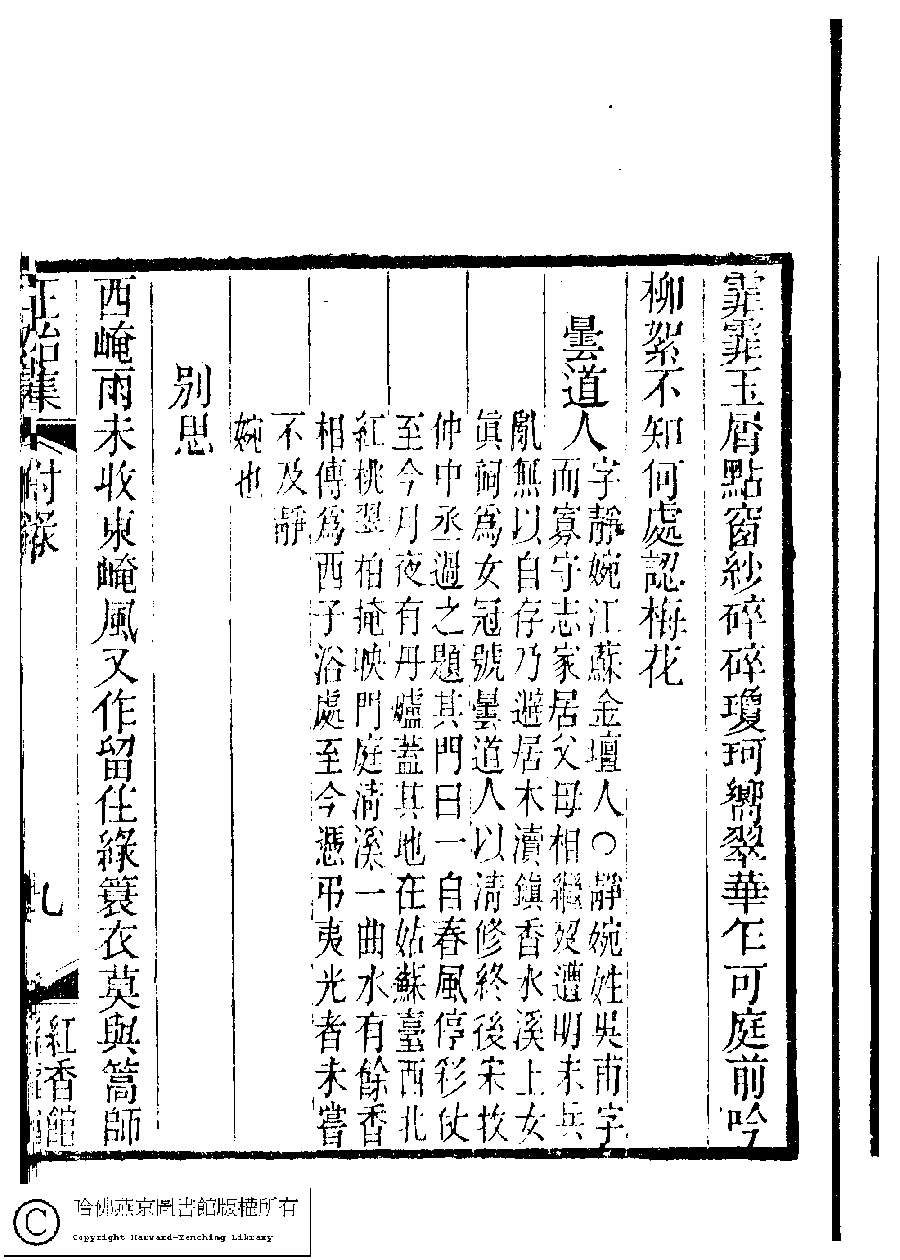 霏霏玉屑點窗紗碎碎瓊珂響翠華乍可庭前吟
柳絮不知何處認梅花
曇道人
字靜婉江蘇金壇人○靜婉姓吳甫字
而寡守志家居父母相繼歿遭明末兵
亂無以自存乃避居木瀆鎮香水溪上女
眞祠爲女冠號曇道人以清修終後宋牧
仲中丞過之題其門曰一自春風停彩仗
至今月夜有丹爐蓋其地在姑蘇臺西北
紅桃翠柏掩映門庭清溪一曲水有餘香
相傳爲西子浴處至今憑弔夷光者未嘗
不及靜
婉也
別思
西崦雨未收東崦風又作留住綠蓑衣莫與篙師
正始集
附錄
九
紅香館
哈佛燕京圖書館版權所有
Copyright Harvard-Yenching Library